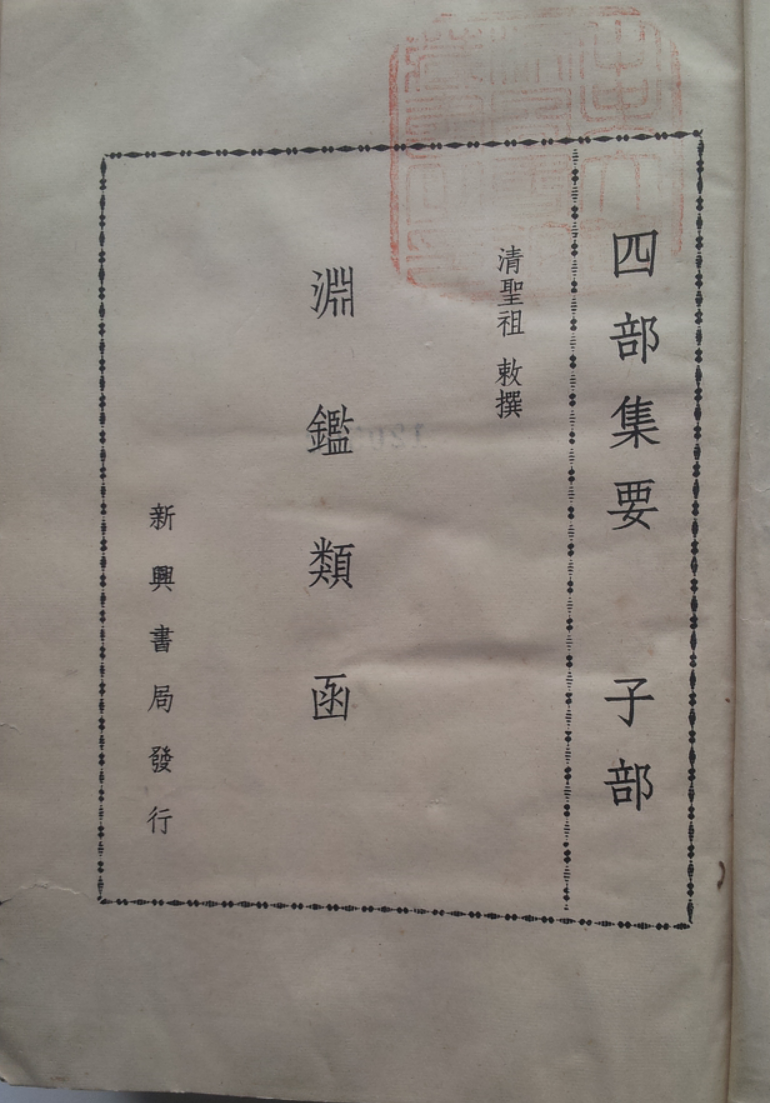 四部集要 子部
清聖祖 敕撰
淵鑑類函
新興書局發行